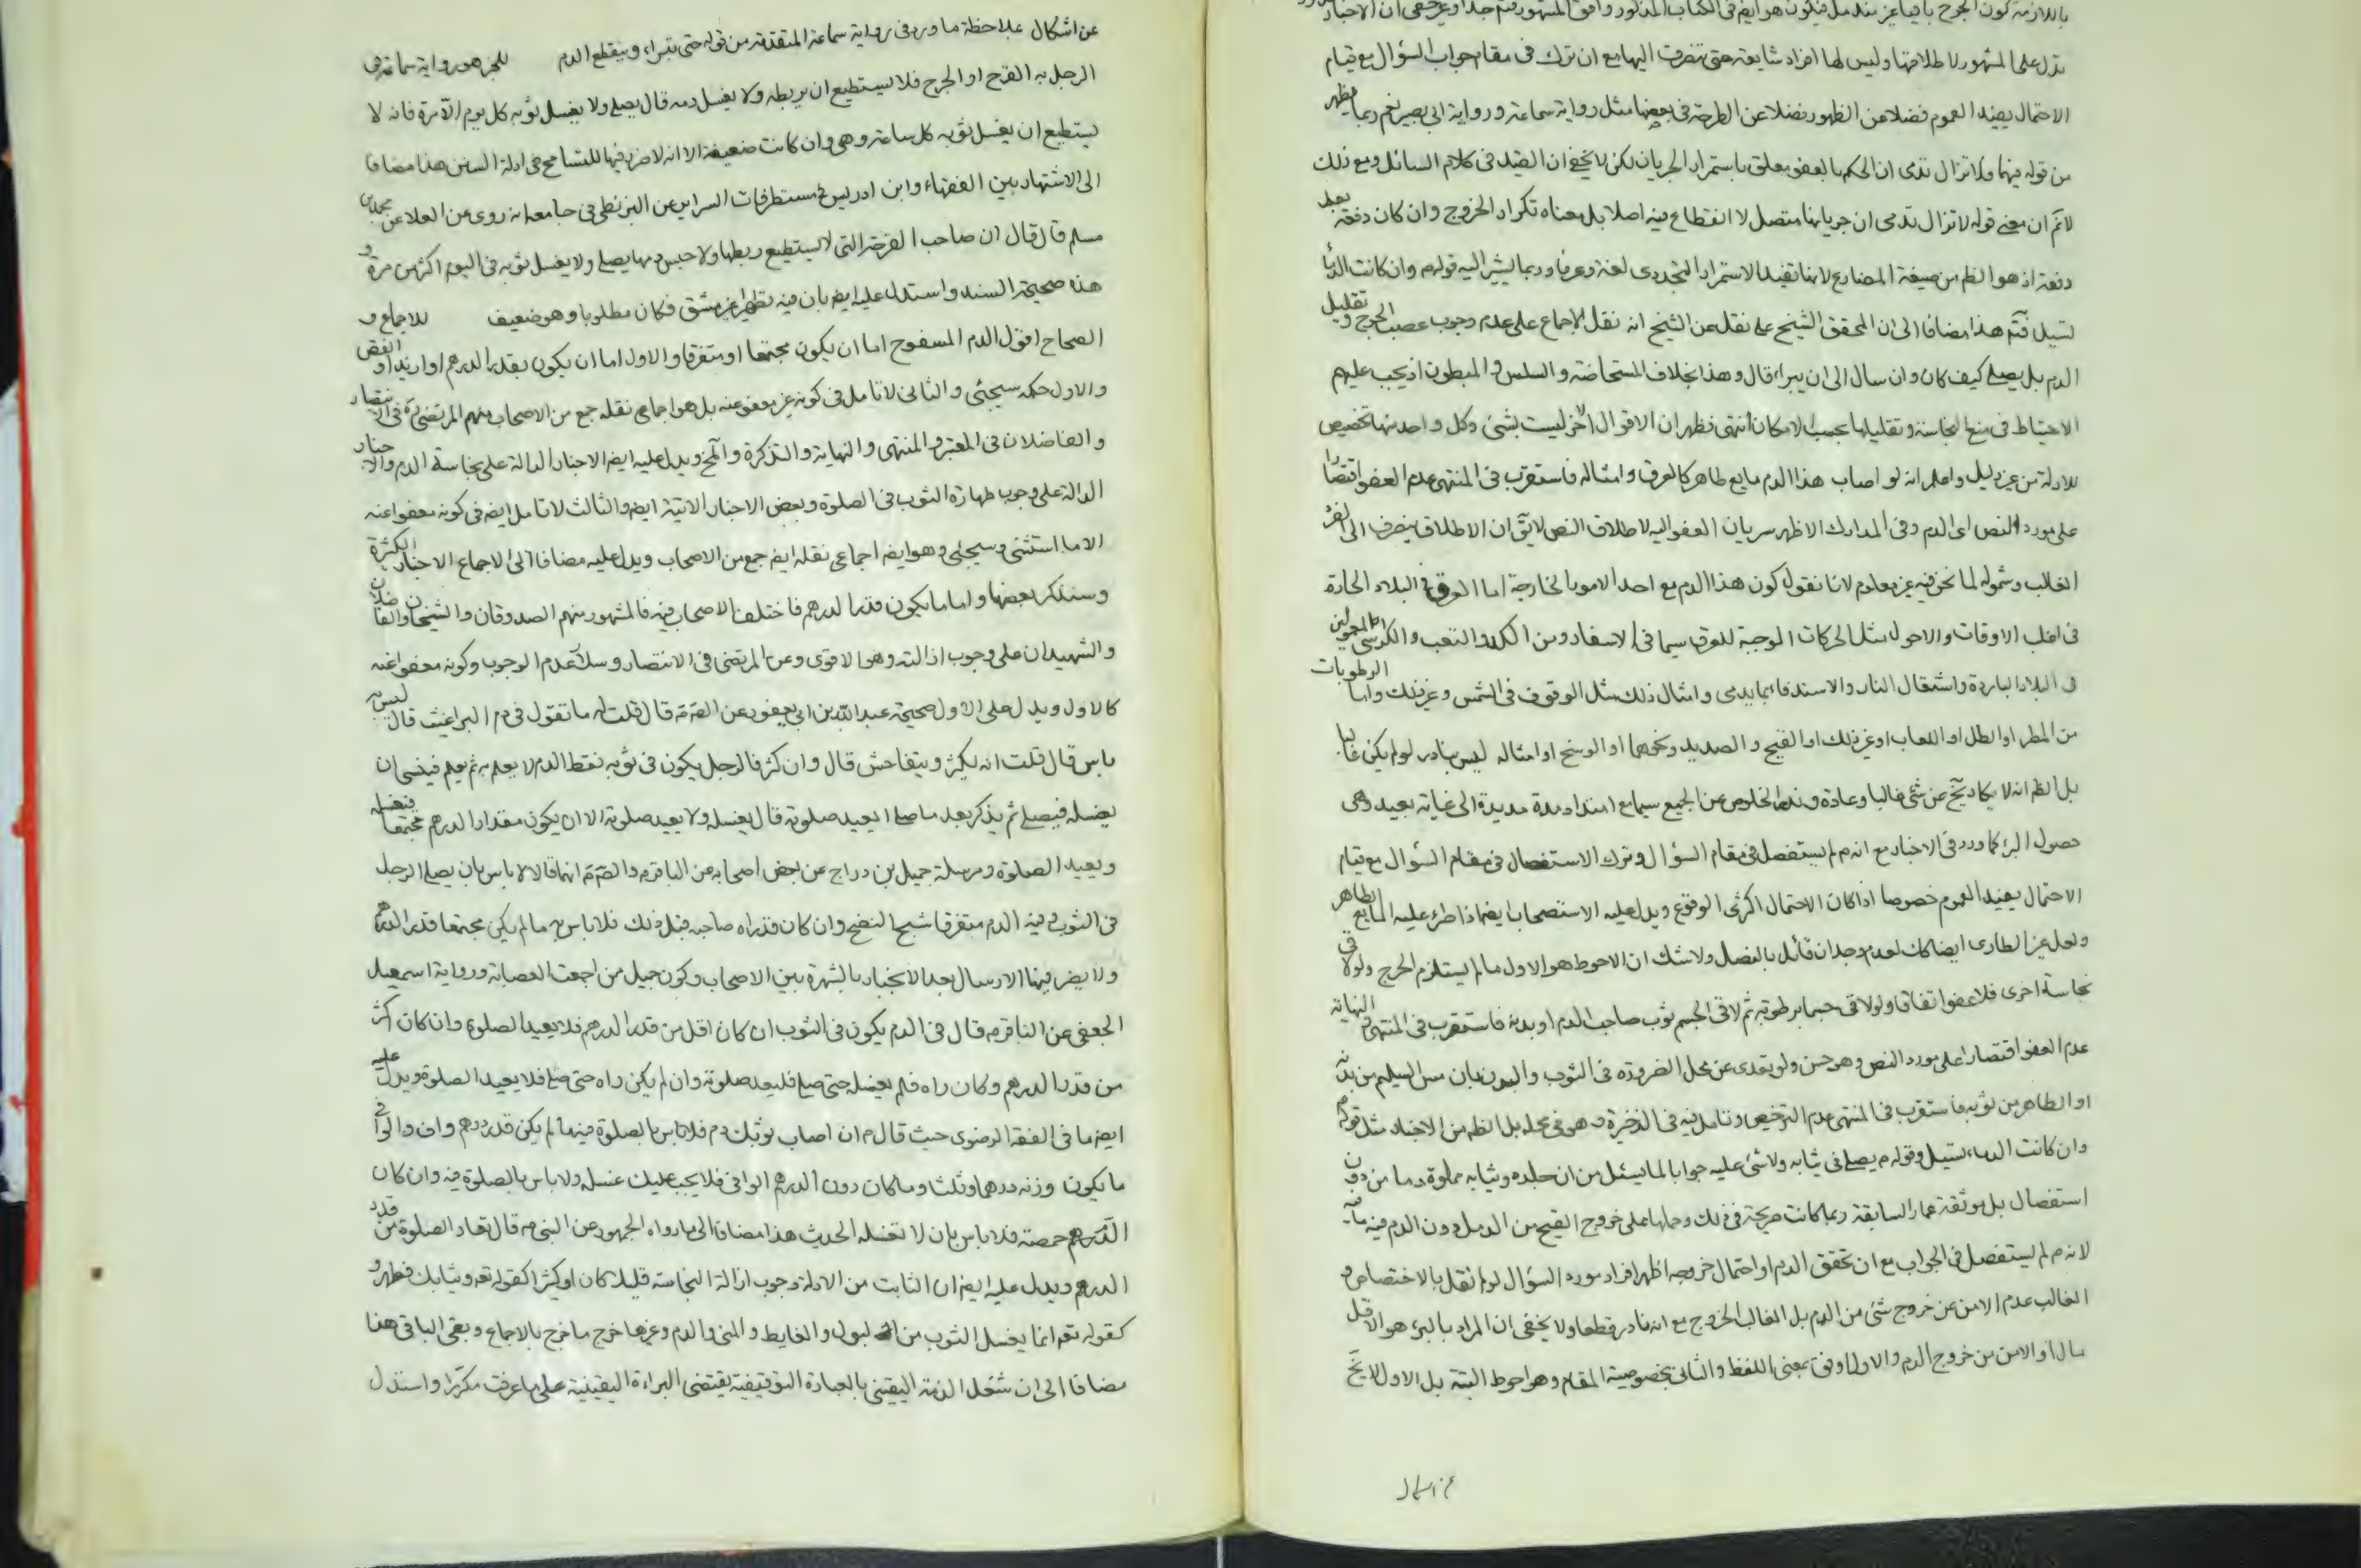 باللازمة كون الجرح باقيا غير مندمل فيكون هو ايض فى الكتاب المذكور وافق المشهور فتم جدا وغير خفى ان الاخبار
تدل على المشهور لاطلاقها وليس لها افراد شايعة حتى تنصرف اليها مع ان ترك فى مقام جواب السؤال مع قيام
الاحتمال يفيد العموم فضلا عن الظهور فضلا عن الطرحة فى بعضها مثل رواية سماعة ورواية ابى بصير نعم ربما يظهر
من قوله فيهما فلا تزال تدمى ان الحكم بالعفو معلق باستمرار الجريان لكن لا يخفى ان القيد فى كلام السائل ومع ذلك
لا ثم ان معنى قوله لا تزال تدمى ان جريانها متصل لا انقطاع فيه اصلا بل معناه تكرار الخروج وان كان دفعة بعد
دفعة اذ هو الظم من صيغة المضارع لانها تفيد الاستمرار التجددى لغة وعرفا وربما يشير اليه قولهم وان كانت الدماء
تسيل فتم هذا مضافا الى ان المحقق الشيخ على نقل عن الشيخ انه نقل الاجماع على عدم وجوب عصب الجرح وتقليل
الدم بل يصلى كيف كان وان سال الى ان يبرا، قال وهذا بخلاف المستحاضة والسلس والمبطون اذ يجب عليهم
الاحتياط فى منع النجاسة وتقليلها بحسب الامكان انتهى فظهر ان الاقوال الاخر ليست بشئ وكل واحد منها تخصيص
للادلة من غير دليل واعلم انه لو اصاب هذا الدم مايع طاهر كالعرق وامثاله فاستقرب فى المنتهى عدم العفو اقتصارا
على مورد النص اى الدم وفى المدارك الاظهر سريان العفو اليه لاطلاق النص لا يق ان الاطلاق ينصرف الى الفرد
الغالب وشموله لما نحن فيه غير معلوم لانا نقول كون هذا الدم مع احد الامور الخارجة اما العرق فى البلاد الحارة
فى اغلب الاوقات والاحوال مثل الحركات الموجبة للعرق سيما فى الاسفار ومن الكد والتعب والكرسى المعمولين
فى البلاد الباردة واشتعال النار والاستدفاء بما يدمى وامثال ذلك مثل الوقوف فى الشمس وغير ذلك واما الرطوبات
من المطر او الطل او اللعاب او غير ذلك او القيح والصديد ونحوهما او الوسخ او امثاله ليس بنادر لو لم يكن غالبا
بل الظم انه لا يكاد يخ عن شئ غالبا وعادة وندر الخلوص عن الجميع سيما مع امتداد مدة مديدة الى غاية بعيدة وهى
حصول البرء كما ورد فى الاخبار مع انه م لم يستفصل فى مقام السؤال وترك الاستفصال فى مقام السؤال مع قيام
الاحتمال يفيد العموم خصوصا اذا كان الاحتمال اكثرى الوقوع ويدل عليه الاستصحاب ايضا اذا طرئ عليه المايع الطاهر
ولعل غير الطارى ايضا كك لعدم وجدان قائل بالفصل ولا شك ان الاحوط هو الاول ما لم يستلزم الحرج ولو لاقى
نجاسة اخرى فلا عفو اتفاقا ولو لاقى جسما برطوبة ثم لاقى الجسم ثوب صاحب الدم او بدنه فاستقرب فى المنتهى والنهاية
عدم العفو اقتصارا على مورد النص وهو حسن ولو تعدى عن محل الضرورة فى الثوب والبدن بان مس السليم من بدنه
او الطاهر من ثوبه فاستقرب فى المنتهى عدم الترخيص وتامل فيه فى الذخيرة وهو فى محله بل الظم من الاخبار مثل قوله م
وان كانت الدماء تسيل وقوله م يصلى فى ثيابه ولا شئ عليه جوابا لما يسئل من ان جلده وثيابه مملوة دما من دون
استفصال بل موثقة عمار السابقة ربما كانت صريحة فى ذلك وحملها على خروج القيح من الدمل دون الدم فيه ما فيه
لانه م لم يستفصل فى الجواب مع ان تحقق الدم او احتمال خروجه اظهر افراد مورد السؤال لو لم نقل بالاختصاص و
الغالب عدم الامن عن خروج شئ من الدم بل الغالب الخروج مع انه نادر قطعا ولا يخفى ان المراد بالبرء هو الاندمال
او الامن من خروج الدم والاول اوفق بمعنى اللفظ والثانى بخصوصية المقام وهو احوط البتة بل الاول لا يخ
عن اشكال
عن اشكال بملاحظة ما ورد فى رواية سماعة المتقدمة من قوله حتى تبراء وينقطع الدم للجزء هو رواية سماعة فى
الرجل به القرح او الجرح فلا يستطيع ان يربطه ولا يغسل دمه قال يصلى ولا يغسل ثوبه كل يوم الا مرة فانه لا
يستطيع ان يغسل ثوبه كل ساعة وهى وان كانت ضعيفة الا انه لا ضرر فيها للتسامح فى ادلة السنن هذا مضافا
الى الاشتهار بين الفقهاء وابن ادريس فى مستطرفات السراير عن البزنطى فى جامعه انه روى عن العلا عن محمد بن
مسلم قال قال ان صاحب القرحة التى لا يستطيع ربطها ولا حبس دمها يصلى ولا يغسل ثوبه فى اليوم اكثر من مرة و
هذه صحيحة السند واستدل عليه ايض بان فيه تطهيرا غير مشق فكان مطلوبا وهو ضعيف للاجماع و
الصحاح اقول الدم المسفوح اما ان يكون مجتمعا او متفرقا والاول اما ان يكون بقدر الدرهم او ازيد او انقص
والاول حكمه سيجئى والثانى لا تامل فى كونه غير معفو عنه بل هو اجماعى نقله جمع من الاصحاب منهم المرتضى ره فى الانتصار
والفاضلان فى المعتبر والمنتهى والنهاية والتذكرة والمخ ويدل عليه ايض الاخبار الدالة على نجاسة الدم والاخبار
الدالة على وجوب طهارة الثوب فى الصلوة وبعض الاخبار الاتية ايض والثالث لا تامل ايض فى كونه معفوا عنه
الا ما استثنى وسيجئى وهو ايض اجماعى نقله ايض جمع من الاصحاب ويدل عليه مضافا الى الاجماع الاخبار الكثيرة
وسنذكر بعضها واما ما يكون قدر الدرهم فاختلف الاصحاب فيه فالمشهور منهم الصدوقان والشيخان والفاضلان
والشهيدان على وجوب ازالته وهو الاقوى وعن المرتضى فى الانتصار وسلار عدم الوجوب وكونه معفوا عنه
كالاول ويدل على الاول صحيحة عبد الله بن ابى يعفور عن الصم قال قلت له ما تقول فى دم البراغيث قال ليس به
باس قال قلت انه يكثر ويتفاحش قال وان كثر فالرجل يكون فى ثوبه نقط الدم لا يعلم به ثم يعلم فينسى ان
يغسله فيصلى ثم يذكر بعد ما صلى ايعيد صلوته قال يغسله ولا يعيد صلوته الا ان يكون مقدار الدرهم مجتمعا فيغسله
ويعيد الصلوة ومرسلة جميل بن دراج عن بعض اصحابه عن الباقر م والصم م انهما قالا لا باس بان يصلى الرجل
فى الثوب وفيه الدم متفرقا شبح النضح وان كان قد راه صاحبه قبل ذلك فلا باس به ما لم يكن مجتمعا قدر الدرهم
ولا يضر فيها الارسال بعد الانجبار بالشهرة بين الاصحاب وكون جميل من اجمعت العصابة ورواية اسمعيل
الجعفى عن الباقر م قال فى الدم يكون فى الثوب ان كان اقل من قدر الدرهم فلا يعيد الصلوة وان كان اكثر
من قدر الدرهم وكان راه فلم يغسله حتى صلى فليعد صلوته وان لم يكن راه حتى صلى فلا يعيد الصلوة ويدل عليه
ايض ما فى الفقه الرضوى حيث قال م ان اصاب ثوبك دم فلا باس بالصلوة فيه ما لم يكن قدر درهم واف والوافى
ما يكون وزنه درهما وثلثا وما كان دون الدرهم الوافى فلا يجب عليك غسله ولا باس بالصلوة فيه وان كان
الدم حمصة فلا باس بان لا تغسله الحديث هذا مضافا الى ما رواه الجمهور عن النبى م قال تعاد الصلوة من قدر
الدرهم ويدل عليه ايض ان الثابت من الادلة وجوب ازالة النجاسة قليلا كان او كثيرا كقوله تعم وثيابك فطهر و
كقوله تعم انما يغسل الثوب من البول والغايط والمنى والدم وغيرها خرج ما خرج بالاجماع وبقى الباقى هذا
مضافا الى ان شغل الذمة اليقينى بالعبادة التوقيفية يقتضى البراءة اليقينية على ما عرفت مكررا واستدل